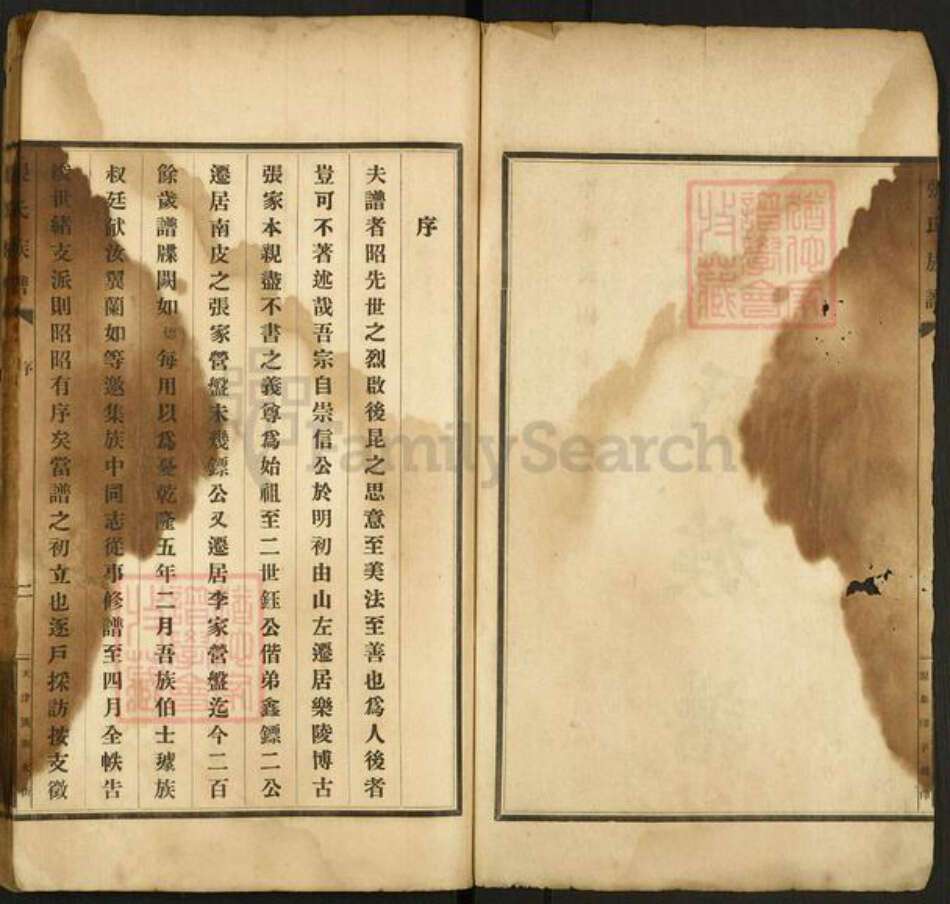 氏族譜
序
夫譜者昭先世之烈啟後昆之思意至美法至善也爲人後者
豈可不著述哉吾宗自崇信公於明初由山左遷居樂陵博古
張家本親盡不書之義尊爲始祖至二世鈺公偕弟鑫鏢二公
遷居南皮之張家營盤未幾鏢公又遷居李家營盤迄今二百
餘歲譜牒闕如每用以爲憂乾隆五年二月吾族伯士璩族
叔廷猷汝翼蘭如等邀集族中同志從事修譜至四月全帙告
世緒支派則昭昭有序矣當譜之初立也逐戶採訪按支徵
氏族譜
序
二
天津
FamilySearch